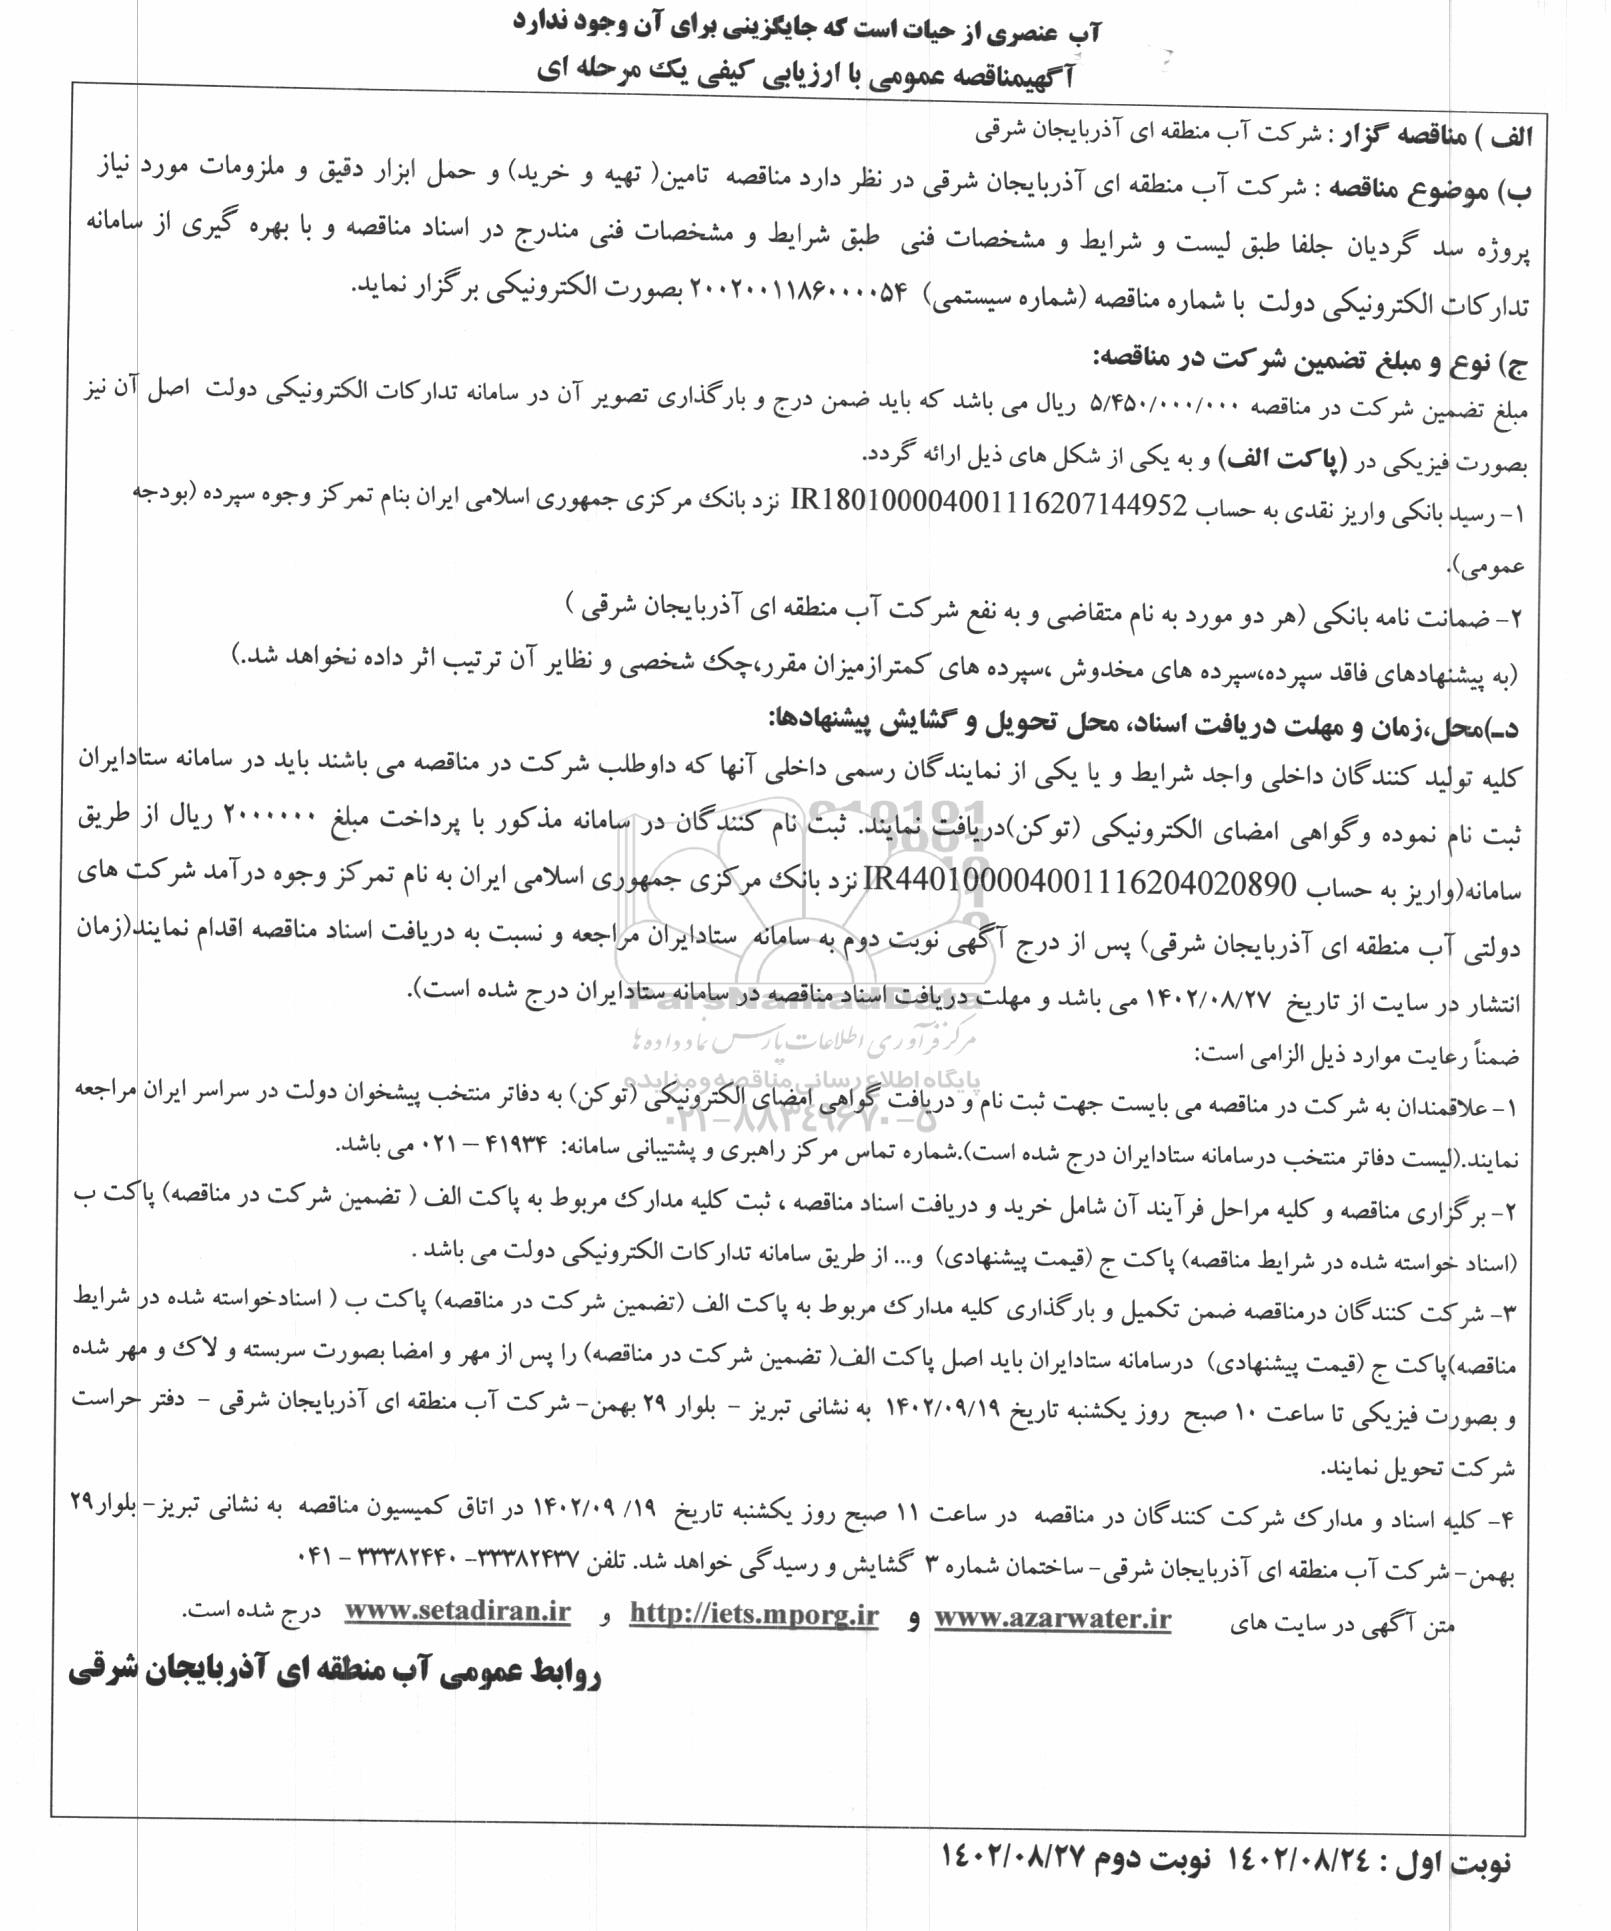 آب عنصری از حیات است که جایگزینی برای آن وجود ندارد
آگهیمناقصه عمومی با ارزیابی کیفی یک مرحله ای
الف ) مناقصه گزار : شرکت آب منطقه ای آذربایجان شرقی
ب) موضوع مناقصه : شرکت آب منطقه ای آذربایجان شرقی در نظر دارد مناقصه تامین( تهیه و خرید) و حمل ابزار دقیق و ملزومات مورد نیاز
پروژه سد گردیان جلفا طبق لیست و شرایط و مشخصات فنی طبق شرایط و مشخصات فنی مندرج در اسناد مناقصه و با بهره گیری از سامانه
تدارکات الکترونیکی دولت با شماره مناقصه (شماره سیستمی) ۲۰۰۲۰۰۱۱۸۶۰۰۰۰۵۴ بصورت الکترونیکی برگزار نماید.
ج) نوع و مبلغ تضمین شرکت در مناقصه:
مبلغ تضمین شرکت در مناقصه ۵/۴۵۰/۰۰۰/۰۰۰ ریال می باشد که باید ضمن درج و بارگذاری تصویر آن در سامانه تدارکات الکترونیکی دولت اصل آن نیز
بصورت فیزیکی در (پاکت الف) و به یکی از شکل های ذیل ارائه گردد.
۱- رسید بانکی واریز نقدی به حساب IR180100004001116207144952 نزد بانک مرکزی جمهوری اسلامی ایران بنام تمرکز وجوه سپرده (بودجه
عمومی).
۲- ضمانت نامه بانکی (هر دو مورد به نام متقاضی و به نفع شرکت آب منطقه ای آذربایجان شرقی )
(به پیشنهادهای فاقد سپرده،سپرده های مخدوش ،سپرده های کمترازمیزان مقرر،چک شخصی و نظایر آن ترتیب اثر داده نخواهد شد.)
د-)محل،زمان و مهلت دریافت اسناد، محل تحویل و گشایش پیشنهادها:
کلیه تولید کنندگان داخلی واجد شرایط و یا یکی از نمایندگان رسمی داخلی آنها که داوطلب شرکت در مناقصه می باشند باید در سامانه ستادایران
ثبت نام نموده وگواهی امضای الکترونیکی (توکن)دریافت نمایند. ثبت نام کنندگان در سامانه مذکور با پرداخت مبلغ ۲۰۰۰۰۰۰ ریال از طریق
سامانه(واریز به حساب IR440100004001116204020890 نزد بانک مرکزی جمهوری اسلامی ایران به نام تمرکز وجوه درآمد شرکت های
دولتی آب منطقه ای آذربایجان شرقی) پس از درج آگهی نوبت دوم به سامانه ستادایران مراجعه و نسبت به دریافت اسناد مناقصه اقدام نمایند(زمان
انتشار در سایت از تاریخ ۱۴۰۲/۰۸/۲۷ می باشد و مهلت دریافت اسناد مناقصه در سامانه ستادایران درج شده است).
ParsNamadData
مرکز فرآوری اطلاعات پارس نماد داده ها
ضمناً رعایت موارد ذیل الزامی است:
پایگاه اطلاع رسانی مناقصه و مزایده
۱- علاقمندان به شرکت در مناقصه می بایست جهت ثبت نام و دریافت گواهی امضای الکترونیکی (توکن) به دفاتر منتخب پیشخوان دولت در سراسر ایران مراجعه
۰۲۱-۸۸۳۴۹۶۷۰-۵
نمایند.(لیست دفاتر منتخب درسامانه ستادایران درج شده است).شماره تماس مرکز راهبری و پشتیبانی سامانه: ۴۱۹۳۴ – ۰۲۱ می باشد.
۲- برگزاری مناقصه و کلیه مراحل فرآیند آن شامل خرید و دریافت اسناد مناقصه ، ثبت کلیه مدارک مربوط به پاکت الف ( تضمین شرکت در مناقصه) پاکت ب
(اسناد خواسته شده در شرایط مناقصه) پاکت ج (قیمت پیشنهادی) و... از طریق سامانه تدارکات الکترونیکی دولت می باشد .
۳- شرکت کنندگان درمناقصه ضمن تکمیل و بارگذاری کلیه مدارک مربوط به پاکت الف (تضمین شرکت در مناقصه) پاکت ب ( اسنادخواسته شده در شرایط
مناقصه)پاکت ج (قیمت پیشنهادی) درسامانه ستادایران باید اصل پاکت الف( تضمین شرکت در مناقصه) را پس از مهر و امضا بصورت سربسته و لاک و مهر شده
و بصورت فیزیکی تا ساعت ۱۰ صبح روز یکشنبه تاریخ ۱۴۰۲/۰۹/۱۹ به نشانی تبریز - بلوار ۲۹ بهمن- شرکت آب منطقه ای آذربایجان شرقی - دفتر حراست
شرکت تحویل نمایند.
۴- کلیه اسناد و مدارک شرکت کنندگان در مناقصه در ساعت ۱۱ صبح روز یکشنبه تاریخ ۱۹/ ۱۴۰۲/۰۹ در اتاق کمیسیون مناقصه به نشانی تبریز- بلوار۲۹
بهمن- شرکت آب منطقه ای آذربایجان شرقی- ساختمان شماره ۳ گشایش و رسیدگی خواهد شد. تلفن ۳۳۳۸۲۴۳۷- ۳۳۳۸۲۴۴۰ - ۰۴۱
متن آگهی در سایت های www.azarwater.ir و http://iets.mporg.ir و www.setadiran.ir درج شده است.
روابط عمومی آب منطقه ای آذربایجان شرقی
نوبت اول : ۱٤۰۲/۰۸/۲٤ نوبت دوم ۱٤۰۲/۰۸/۲۷